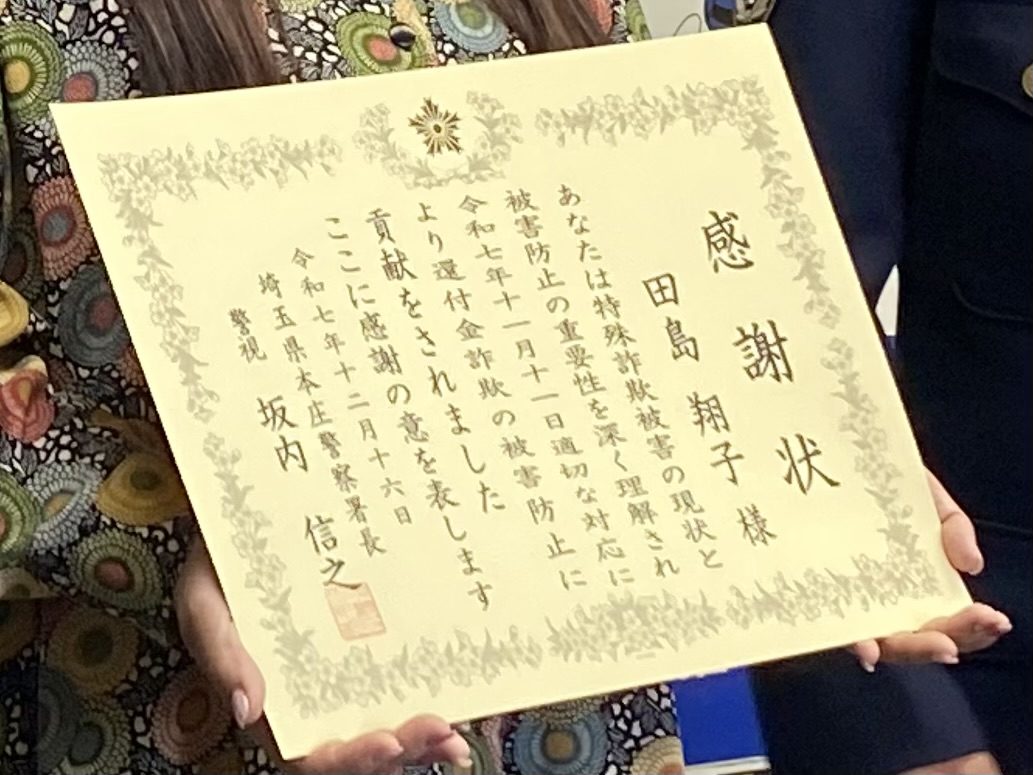 感謝状
田島 翔子 様
あなたは特殊詐欺被害の現状と
被害防止の重要性を深く理解され
令和七年十一月十一日適切な対応に
より還付金詐欺の被害防止に
貢献をされました
ここに感謝の意を表します
令和七年十二月十六日
埼玉県本庄警察署長
警視 坂内 信之